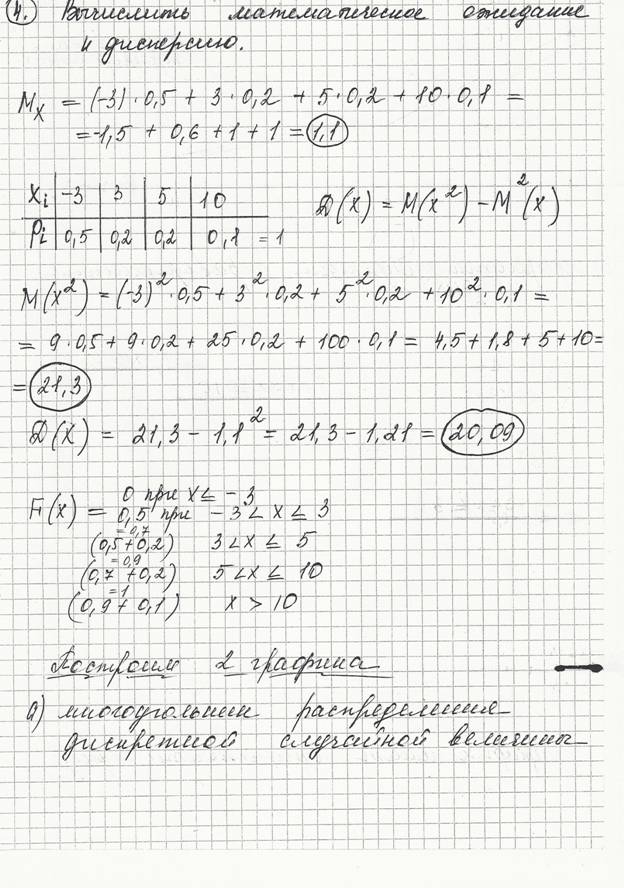 4. Вычислить математическое ожидание
и дисперсию.
Mx = (-3)·0,5 + 3·0,2 + 5·0,2 + 10·0,1 =
= -1,5 + 0,6 + 1 + 1 = 1,1
Xi | -3 | 3 | 5 | 10
Pi | 0,5 | 0,2 | 0,2 | 0,1 = 1
D(x) = M(x²) - M²(x)
M(x²) = (-3)²·0,5 + 3²·0,2 + 5²·0,2 + 10²·0,1 =
= 9·0,5 + 9·0,2 + 25·0,2 + 100·0,1 = 4,5 + 1,8 + 5 + 10 =
= 21,3
D(x) = 21,3 - 1,1² = 21,3 - 1,21 = 20,09
0 при x ≤ -3
F(x) = 0,5 при -3 < x ≤ 3
= 0,7
(0,5 + 0,2) 3 < x ≤ 5
= 0,9
(0,7 + 0,2) 5 < x ≤ 10
= 1
(0,9 + 0,1) x > 10
Построим 2 графика
а) многоугольник распределения
дискретной случайной величины